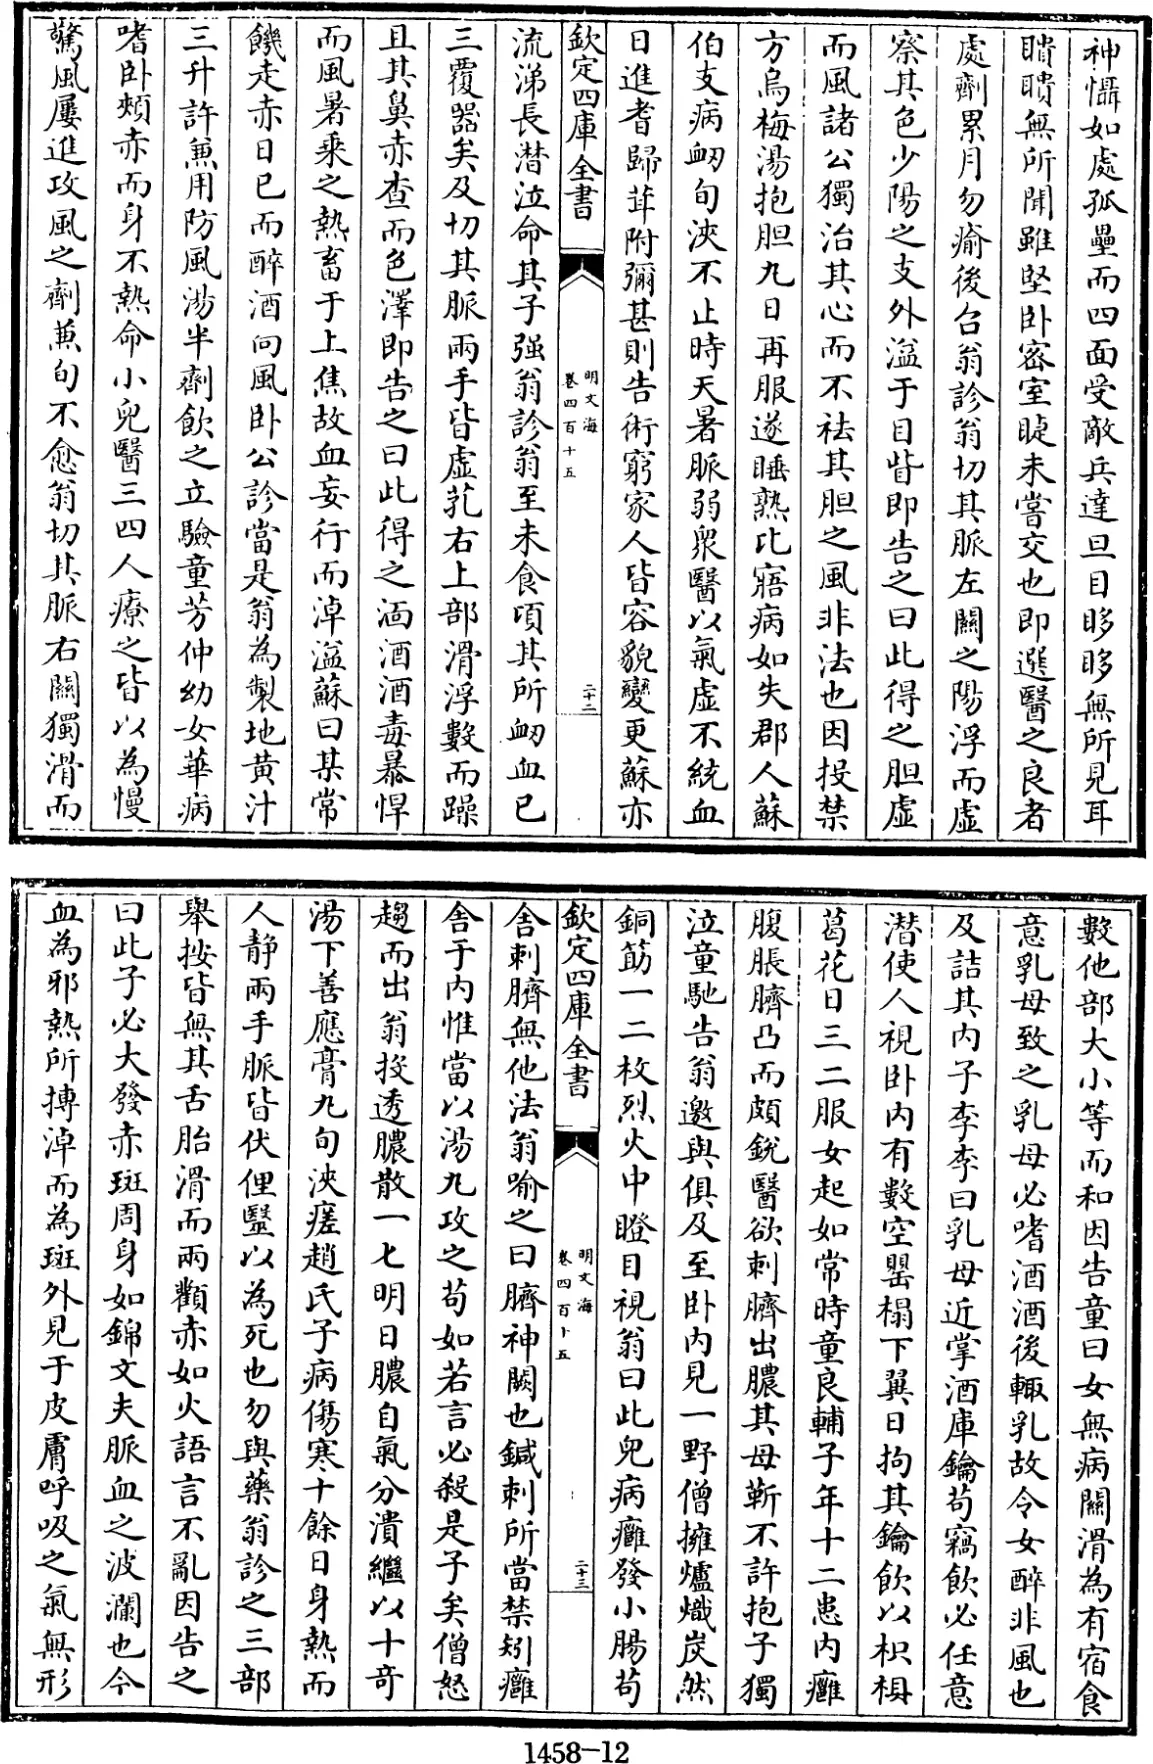 神懾如處孤壘而四面受敵兵達旦目眵眵無所見耳
聵聵無所聞雖堅卧密室睫未嘗交也即選醫之良者
處劑累月勿瘉後召翁診翁切其脈左關之陽浮而虛
察其色少陽之支外溢于目眥即告之曰此得之胆虛
而風諸公獨治其心而不祛其胆之風非法也因投禁
方烏梅湯抱胆丸日再服遂睡熟比寤病如失郡人蘇
伯支病衂旬浹不止時天暑脈弱衆醫以氣虛不統血
日進耆歸茸附彌甚則告術窮家人皆容貌變更蘇亦
欽定四庫全書
明文海
卷四百十五
二十二
流涕長潜泣命其子强翁診翁至未食頃其所衂血已
三覆器矣及切其脈兩手皆虛芤右上部滑浮數而躁
且其鼻赤查而色澤即告之曰此得之湎酒酒毒暴悍
而風暑乘之熱畜于上焦故血妄行而淖溢蘇曰某常
饑走赤日已而醉酒向風卧公診當是翁為製地黄汁
三升許兼用防風湯半劑飲之立驗童芳仲幼女華病
嗜卧頰赤而身不熱命小兒醫三四人療之皆以為慢
驚風屢進攻風之劑兼旬不愈翁切其脈右關獨滑而
數他部大小等而和因告童曰女無病關滑為有宿食
意乳母致之乳母必嗜酒酒後輒乳故令女醉非風也
及詰其内子李李曰乳母近掌酒庫鑰苟竊飲必任意
潜使人視卧内有數空罌榻下翼日拘其鑰飲以枳椇
葛花日三二服女起如常時童良輔子年十二患内癰
腹脹臍凸而頗銳醫欲刺臍出膿其母靳不許抱子獨
泣童馳告翁邀與俱及至卧内見一野僧擁爐熾炭然
銅筯一二枚烈火中瞪目視翁曰此兒病癰發小腸苟
欽定四庫全書
明文海
卷四百十五
二十三
舎刺臍無他法翁喻之曰臍神闕也鍼刺所當禁矧癰
舎于内惟當以湯丸攻之苟如若言必殺是子矣僧怒
趨而出翁投透膿散一匕明日膿自氣分潰繼以十奇
湯下善應膏丸旬浹瘥趙氏子病傷寒十餘日身熱而
人静兩手脈皆伏俚醫以為死也勿與藥翁診之三部
舉按皆無其舌胎滑而兩顴赤如火語言不亂因告之
曰此子必大發赤斑周身如錦文夫脈血之波瀾也今
血為邪熱所摶淖而為斑外見于皮膚呼吸之氣無形
1458—12